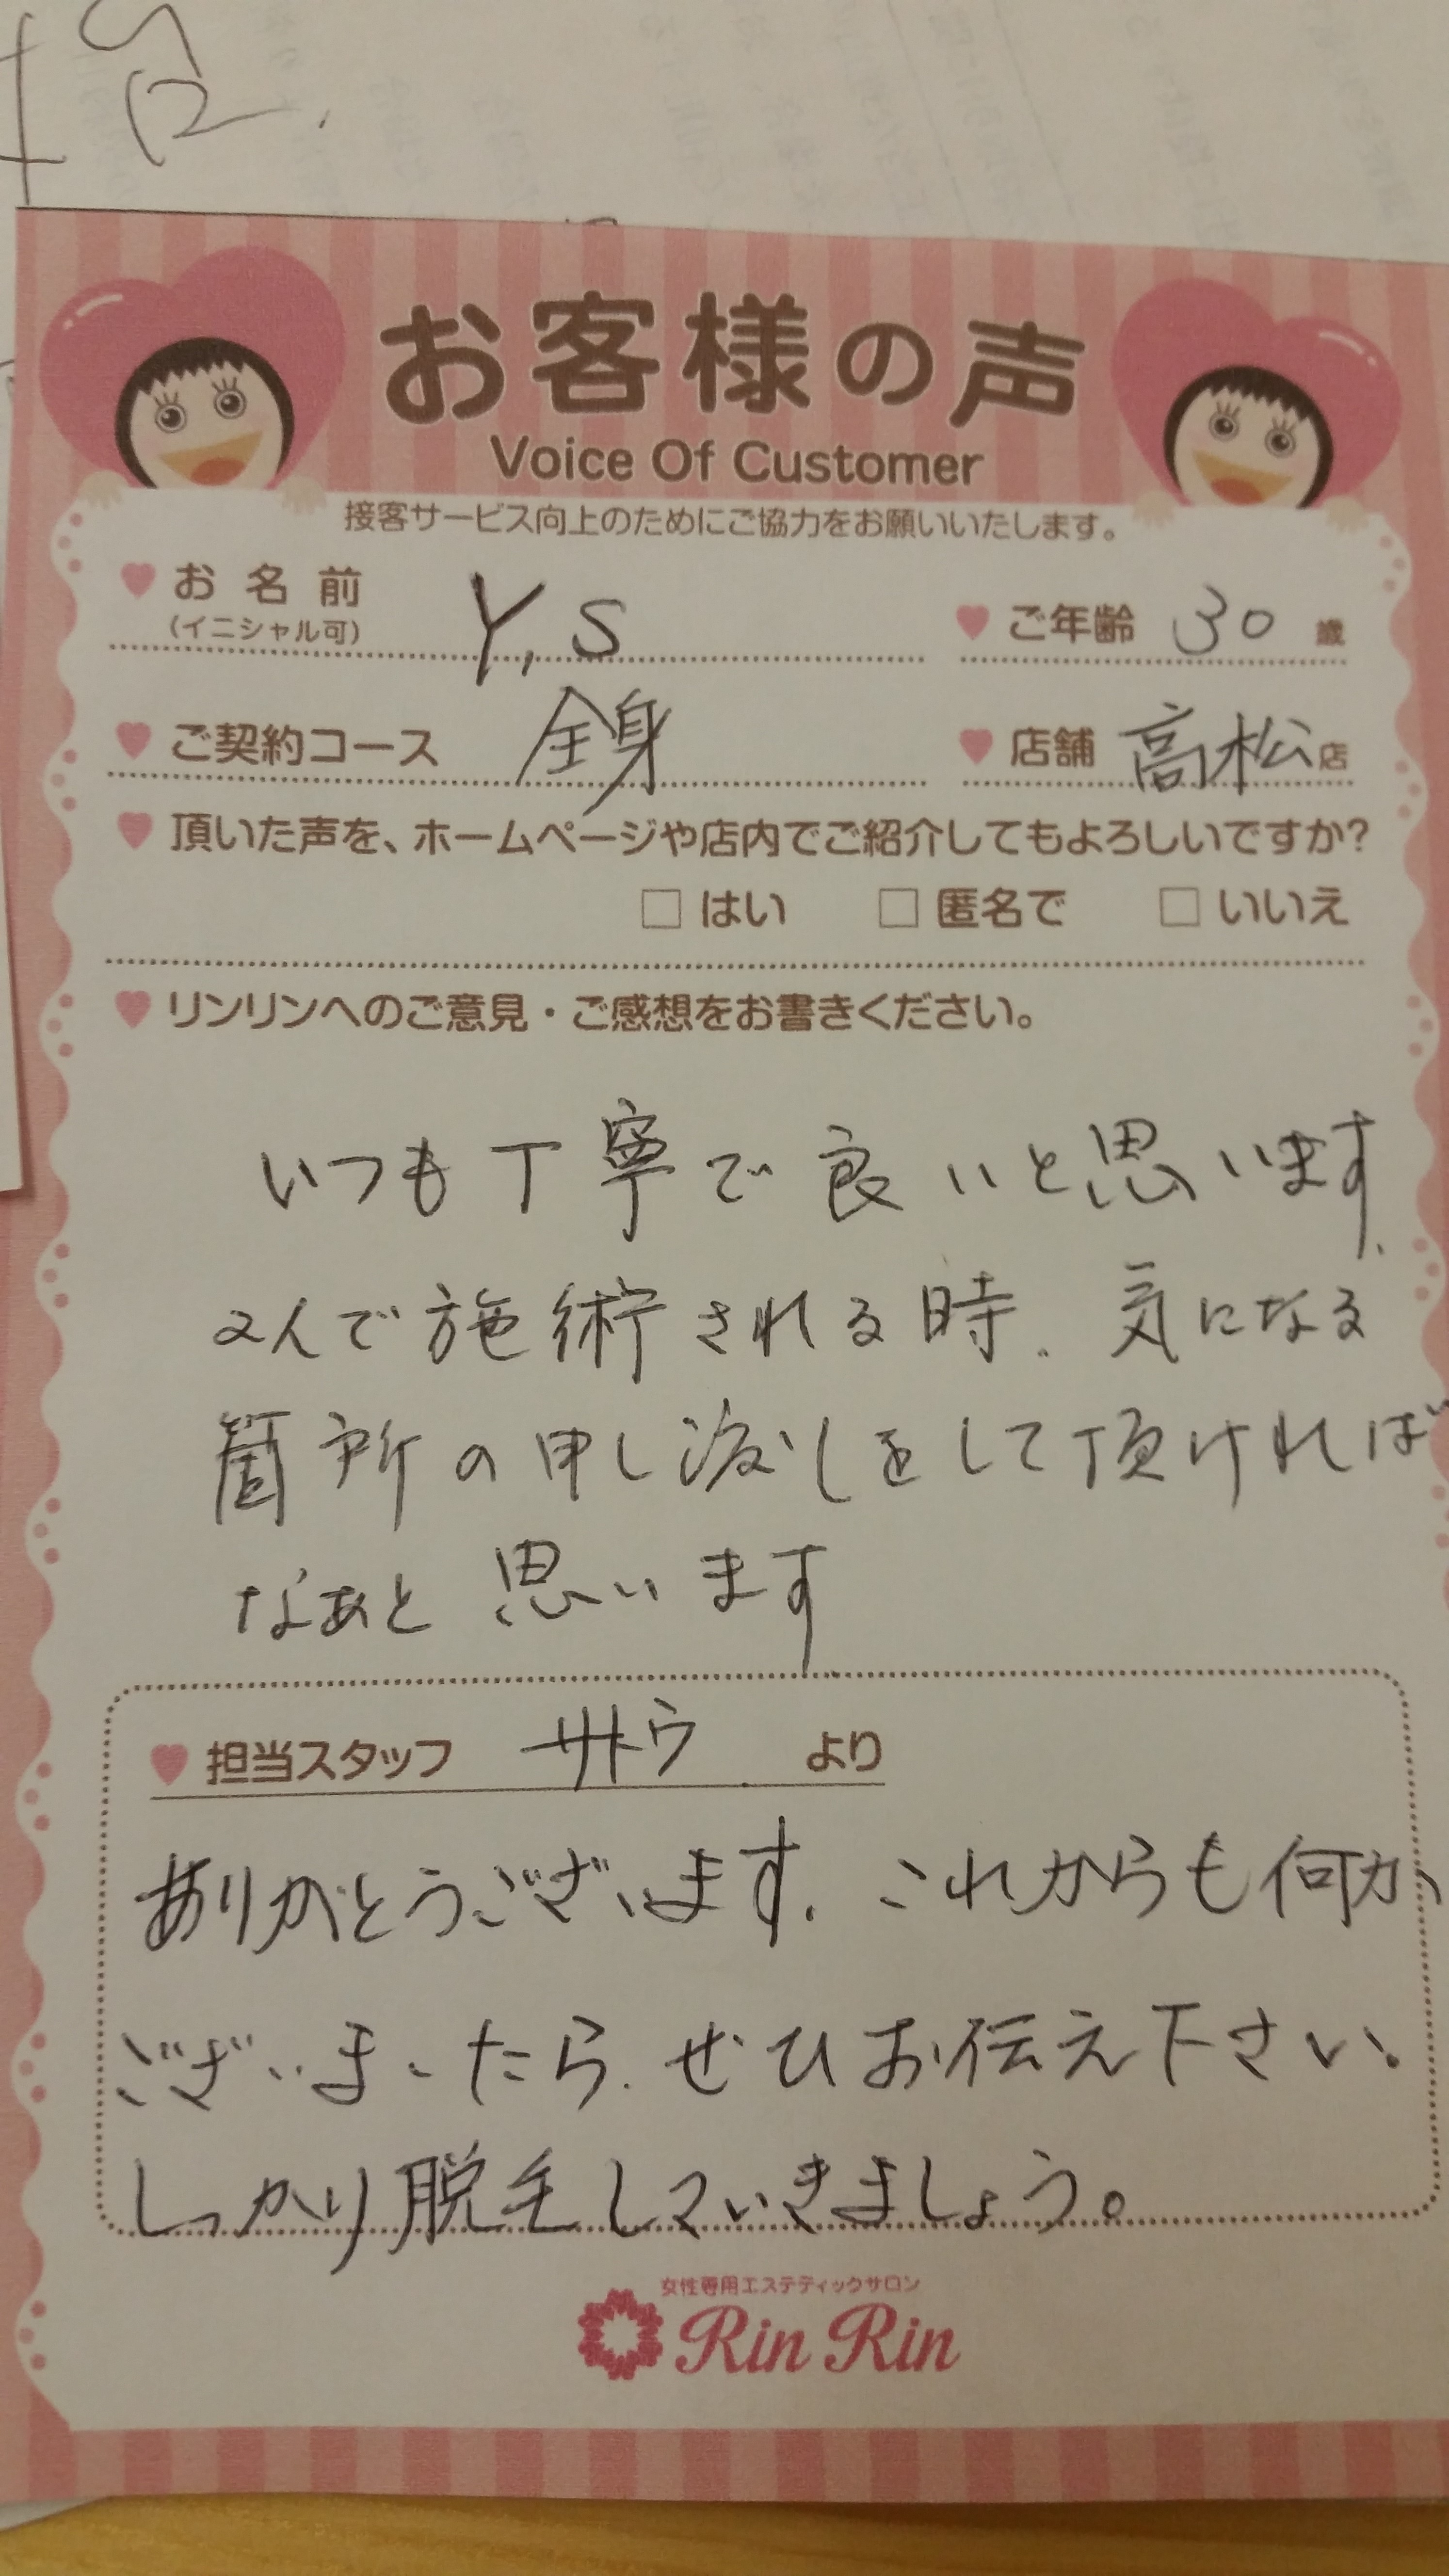 お客様の声
Voice Of Customer
接客サービス向上のためにご協力をお願いいたします。
お名前 Y,S ご年齢 30 歳
(イニシャル可)
ご契約コース 全身 店舗 高松店
頂いた声を、ホームページや店内でご紹介してもよろしいですか?
□ はい □ 匿名で □ いいえ
リンリンへのご意見・ご感想をお書きください。
いつも丁寧で良いと思います、
2人で施術される時、気になる
箇所の申し渡しをして頂ければ
なぁと思います
担当スタッフ サトウ より
ありがとうございます。これからも何か
ございましたら、ぜひお伝え下さい。
しっかり脱毛していきましょう。
女性専用エステティックサロン
Rin Rin